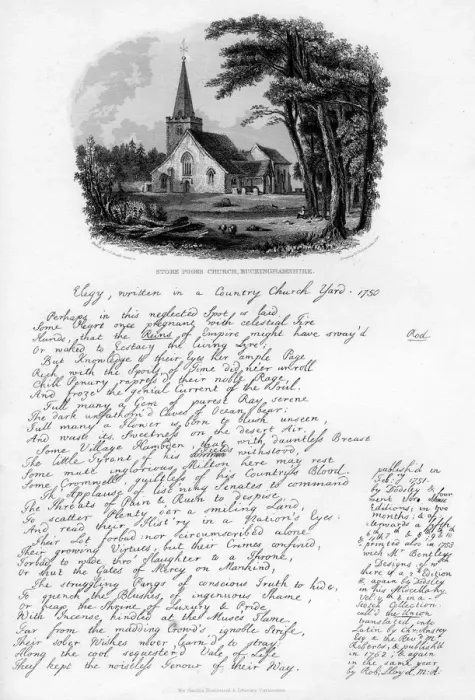 STOKE POGES CHURCH, BUCKINGHAMSHIRE.
Elegy, written in a Country Church Yard. 1750
Perhaps in this neglected Spot is laid
Some Heart once pregnant with celestial Fire
Hands, that the Reins of Empire might have sway'd
Rod
Or waked to Ecstacy the living Lyre,
But Knowledge to their Eyes her ample Page
Rich with the Spoils of Time did ne'er unroll
Chill Penury repress'd their noble Rage
And froze the genial Current of the Soul.
Full many a Gem of purest Ray serene
The dark unfathom'd Caves of Ocean bear:
Full many a Flower is born to blush unseen,
And waste its Sweetness on the desert Air.
Some Village Hampden, that with dauntless Breast
The little Tyrant of his Fields withstood,
Some mute inglorious Milton here may rest
Some Cromwell, guiltless of his Country's Blood.
Th' Applause of list'ning Senates to command
The Threats of Pain & Ruin to despise,
To scatter Plenty o'er a smiling Land,
And read their Hist'ry in a Nation's Eyes
Their Lot forbad: nor circumscribed alone
Their growing Virtues, but their Crimes confined,
Forbad to wade thro' Slaughter to a Throne,
Or shut the Gates of Mercy on Mankind,
The struggling Pangs of conscious Truth to hide,
To quench the Blushes of ingenuous Shame,
Or heap the Shrine of Luxury & Pride
With Incense, kindled at the Muse's Flame.
Far from the madding Crowd's ignoble Strife,
Their sober Wishes never learn'd to stray:
Along the cool sequester'd Vale of Life
They kept the noiseless Tenour of their Way.
publish'd in
Feb:ry 1751.
by Dodsley &
went thro' four
Editions; in two
months; & af-
terwards a fifth
6th 7th & 8th 9th & 10th
& 11th
printed also in 1753
with Mr Bentley's
Designs, of wch
there is a 2d Edition
& again by Dodsley
in his Miscellany.
Vol: 4th & in a
Scotch Collection
call'd the Union.
translated into
Latin by Chr: Anstey
Esq & the Revd Mr
Roberts, & publish'd
in 1762; & again
in the same year
by Rob: Lloyd, M:A: